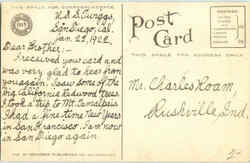 THIS SPACE FOR CORRESPONDENCE
U.S.S. Furggs,
San Diego, Cal.
Jan. 23, 1922.
Dear Brother:-
I received your card and
was very glad to hear from
you again. I saw some of the
big California Redwood Trees
I took a trip to Mt. Tamalpais
I had a fine time New Years
in San Francisco. I am now
in San Diego again
Post Card
THIS SPACE FOR ADDRESS ONLY
Mr. Charles Roam,
Rushville,
Ind.